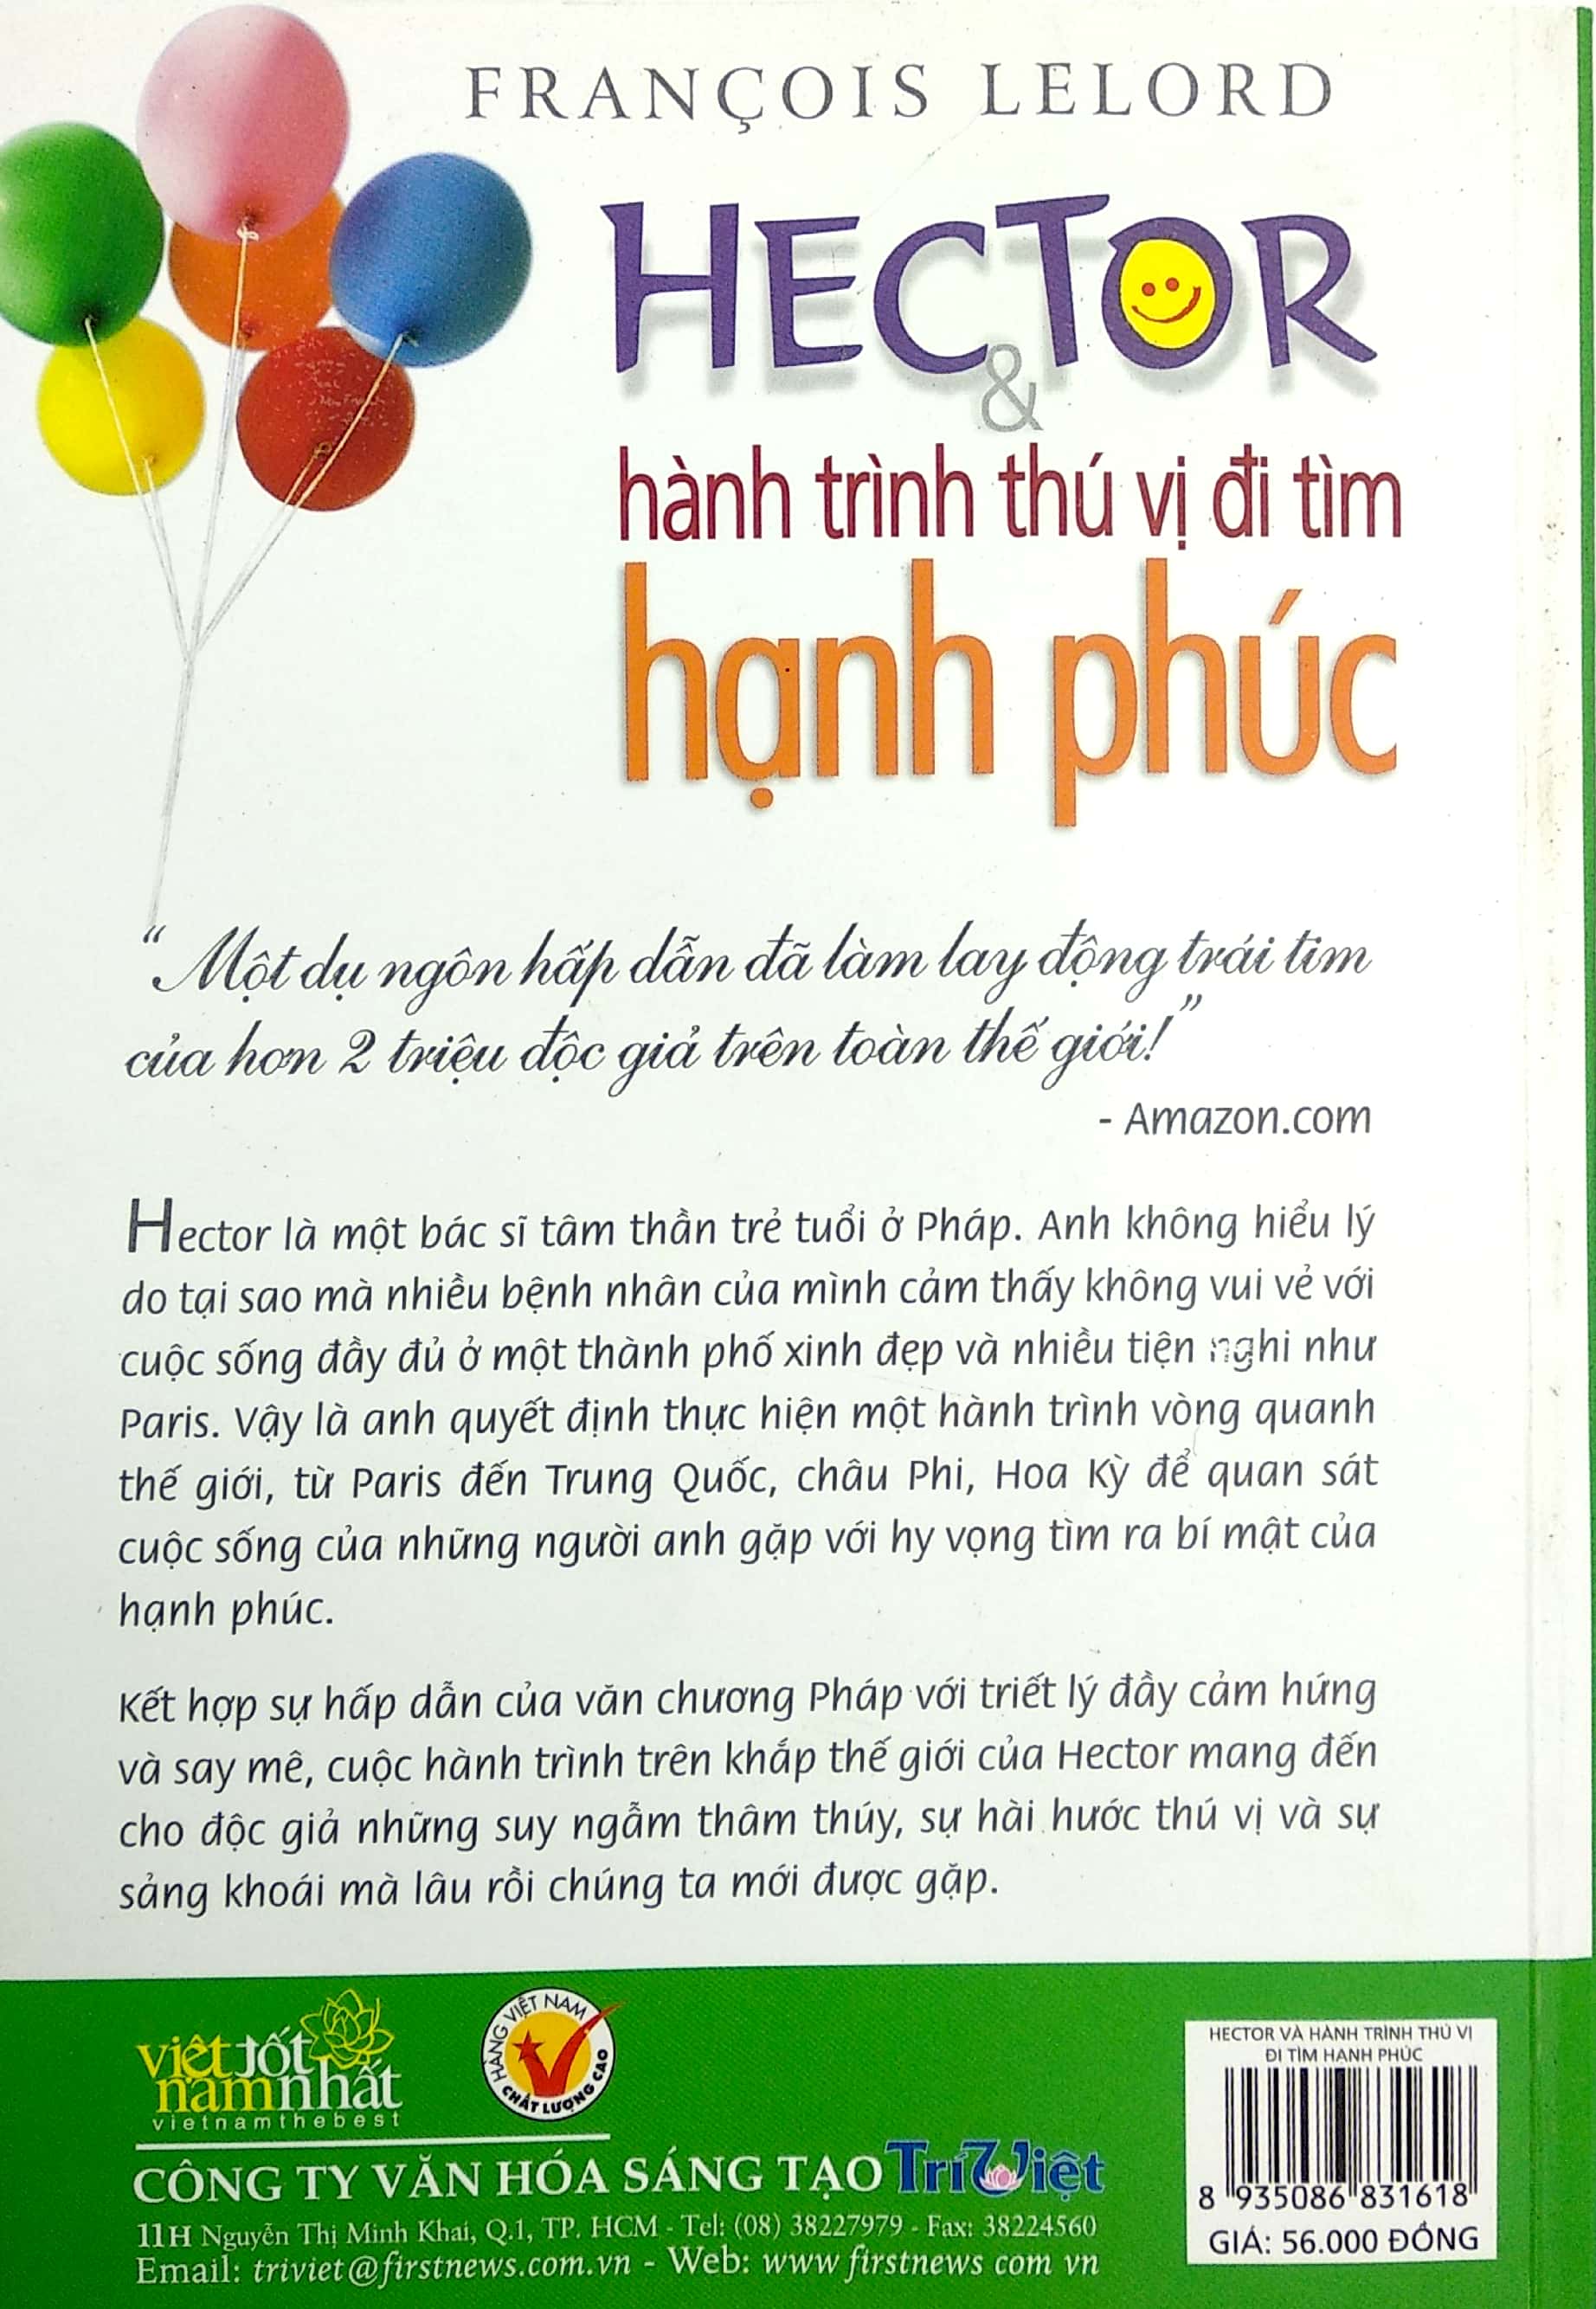 FRANÇOIS LELORD
HECTOR
&
hành trình thú vị đi tìm
hạnh phúc
“Một dụ ngôn hấp dẫn đã làm lay động trái tim
của hơn 2 triệu độc giả trên toàn thế giới!”
- Amazon.com
Hector là một bác sĩ tâm thần trẻ tuổi ở Pháp. Anh không hiểu lý
do tại sao mà nhiều bệnh nhân của mình cảm thấy không vui vẻ với
cuộc sống đầy đủ ở một thành phố xinh đẹp và nhiều tiện nghi như
Paris. Vậy là anh quyết định thực hiện một hành trình vòng quanh
thế giới, từ Paris đến Trung Quốc, châu Phi, Hoa Kỳ để quan sát
cuộc sống của những người anh gặp với hy vọng tìm ra bí mật của
hạnh phúc.
Kết hợp sự hấp dẫn của văn chương Pháp với triết lý đầy cảm hứng
và say mê, cuộc hành trình trên khắp thế giới của Hector mang đến
cho độc giả những suy ngẫm thâm thúy, sự hài hước thú vị và sự
sảng khoái mà lâu rồi chúng ta mới được gặp.
việt tốt
nam nhất
vietnamthebest
HÀNG VIỆT NAM
CHẤT LƯỢNG CAO
CÔNG TY VĂN HÓA SÁNG TẠO TríViệt
11H Nguyễn Thị Minh Khai, Q.1, TP. HCM - Tel: (08) 38227979 - Fax: 38224560
Email: triviet@firstnews.com.vn - Web: www firstnews com vn
HECTOR VÀ HÀNH TRÌNH THÚ VỊ
ĐI TÌM HẠNH PHÚC
8 935086 831618
GIÁ: 56.000 ĐỒNG